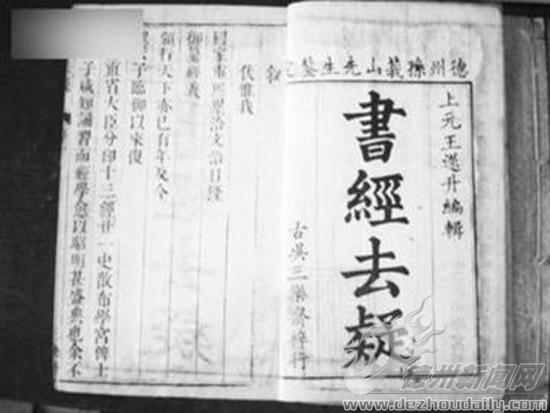 德州孫莪山先生鑒定
上元王選升編輯
書經去疑
古吳三樂齋梓行
敘
伏惟我
國家重熙累洽文治日隆
御纂經義
頒行天下亦已有年及今
子臨御以來復
直省大臣分印十三經廿一史散布學宮俾士
子咸知誦習而經學愈以昭明甚盛典也余不
德州新闻网
www.dezhoudaily.com